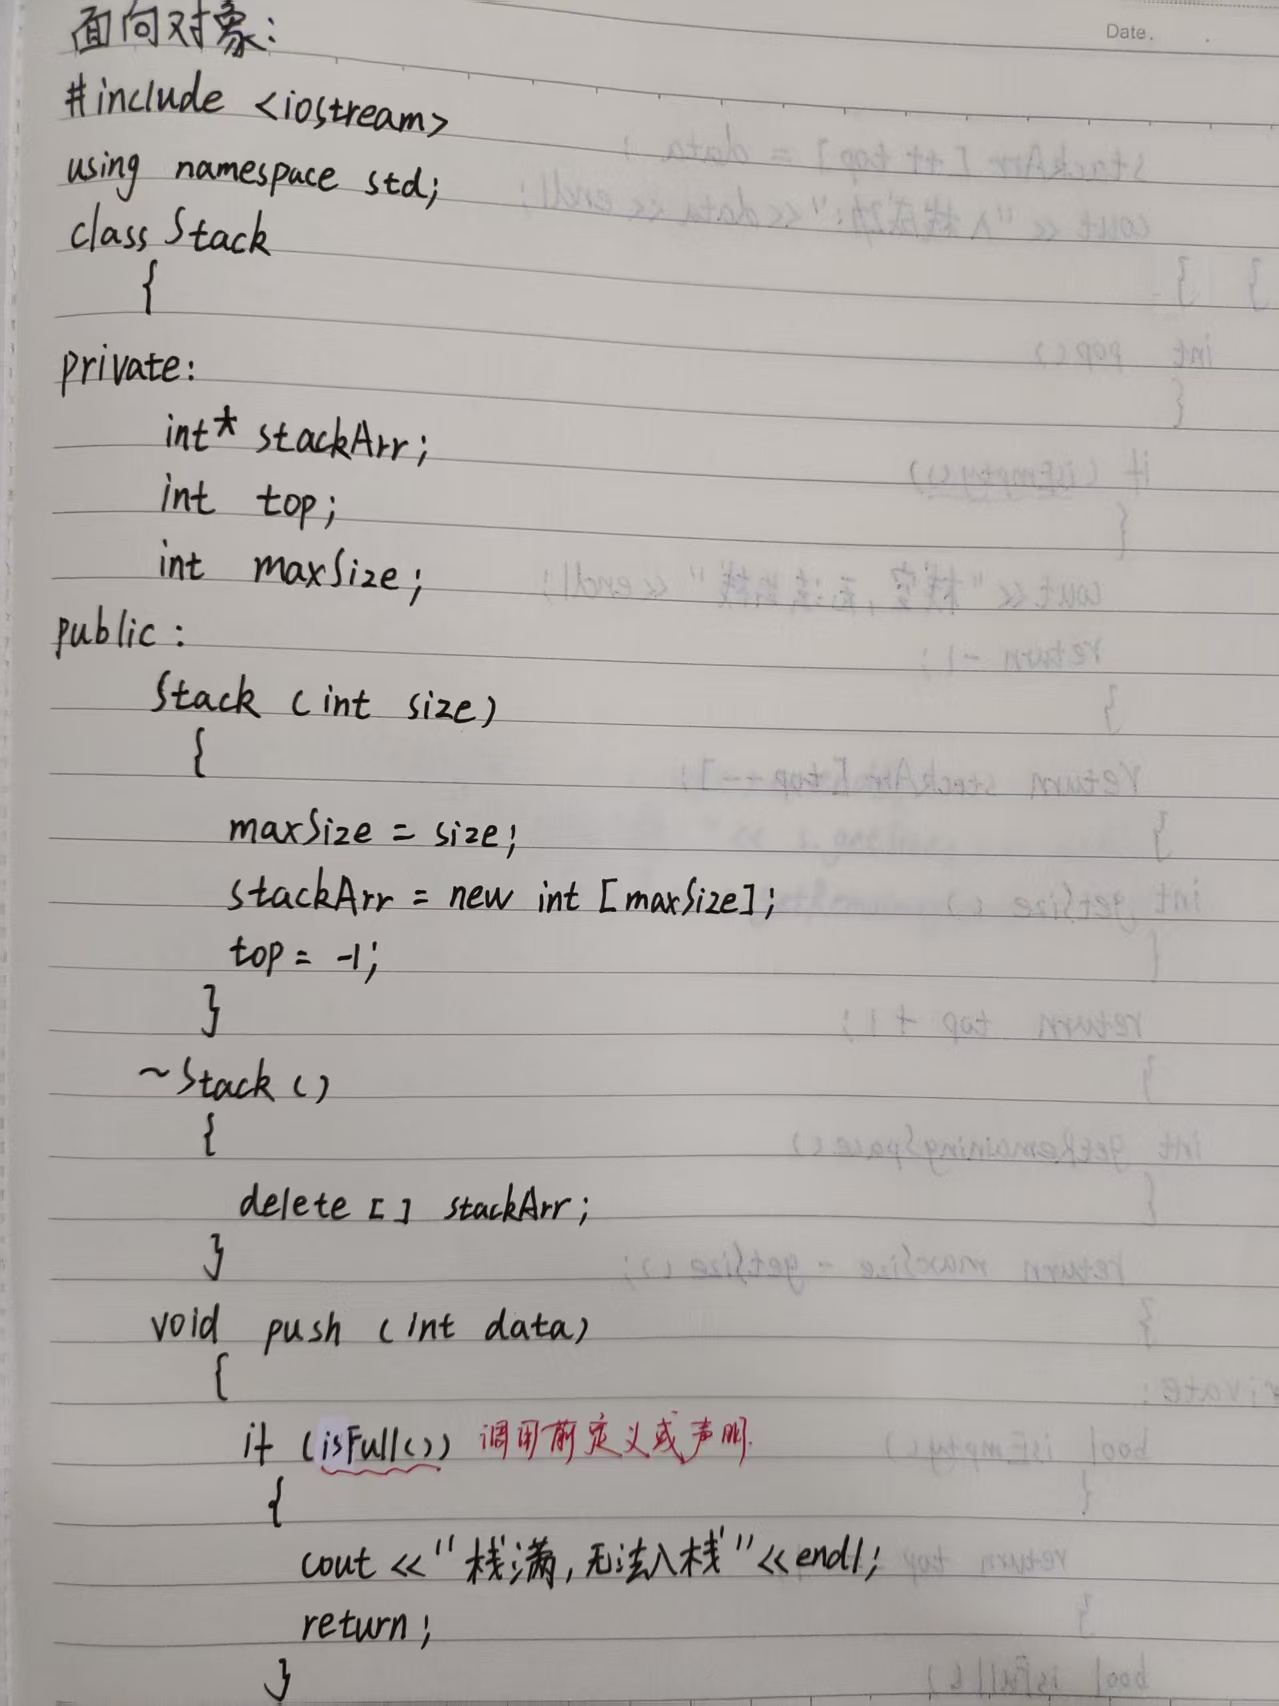 Date.
面向对象:
#include <iostream>
using namespace std;
class Stack
{
private:
int* stackArr;
int top;
int maxSize;
public:
Stack (int size)
{
maxSize = size;
stackArr = new int [maxSize];
top = -1;
}
~Stack ()
{
delete [] stackArr;
}
void push (int data)
{
if (isFull()) 调用前定义或声明.
{
cout << "栈满,无法入栈" << endl;
return;
}